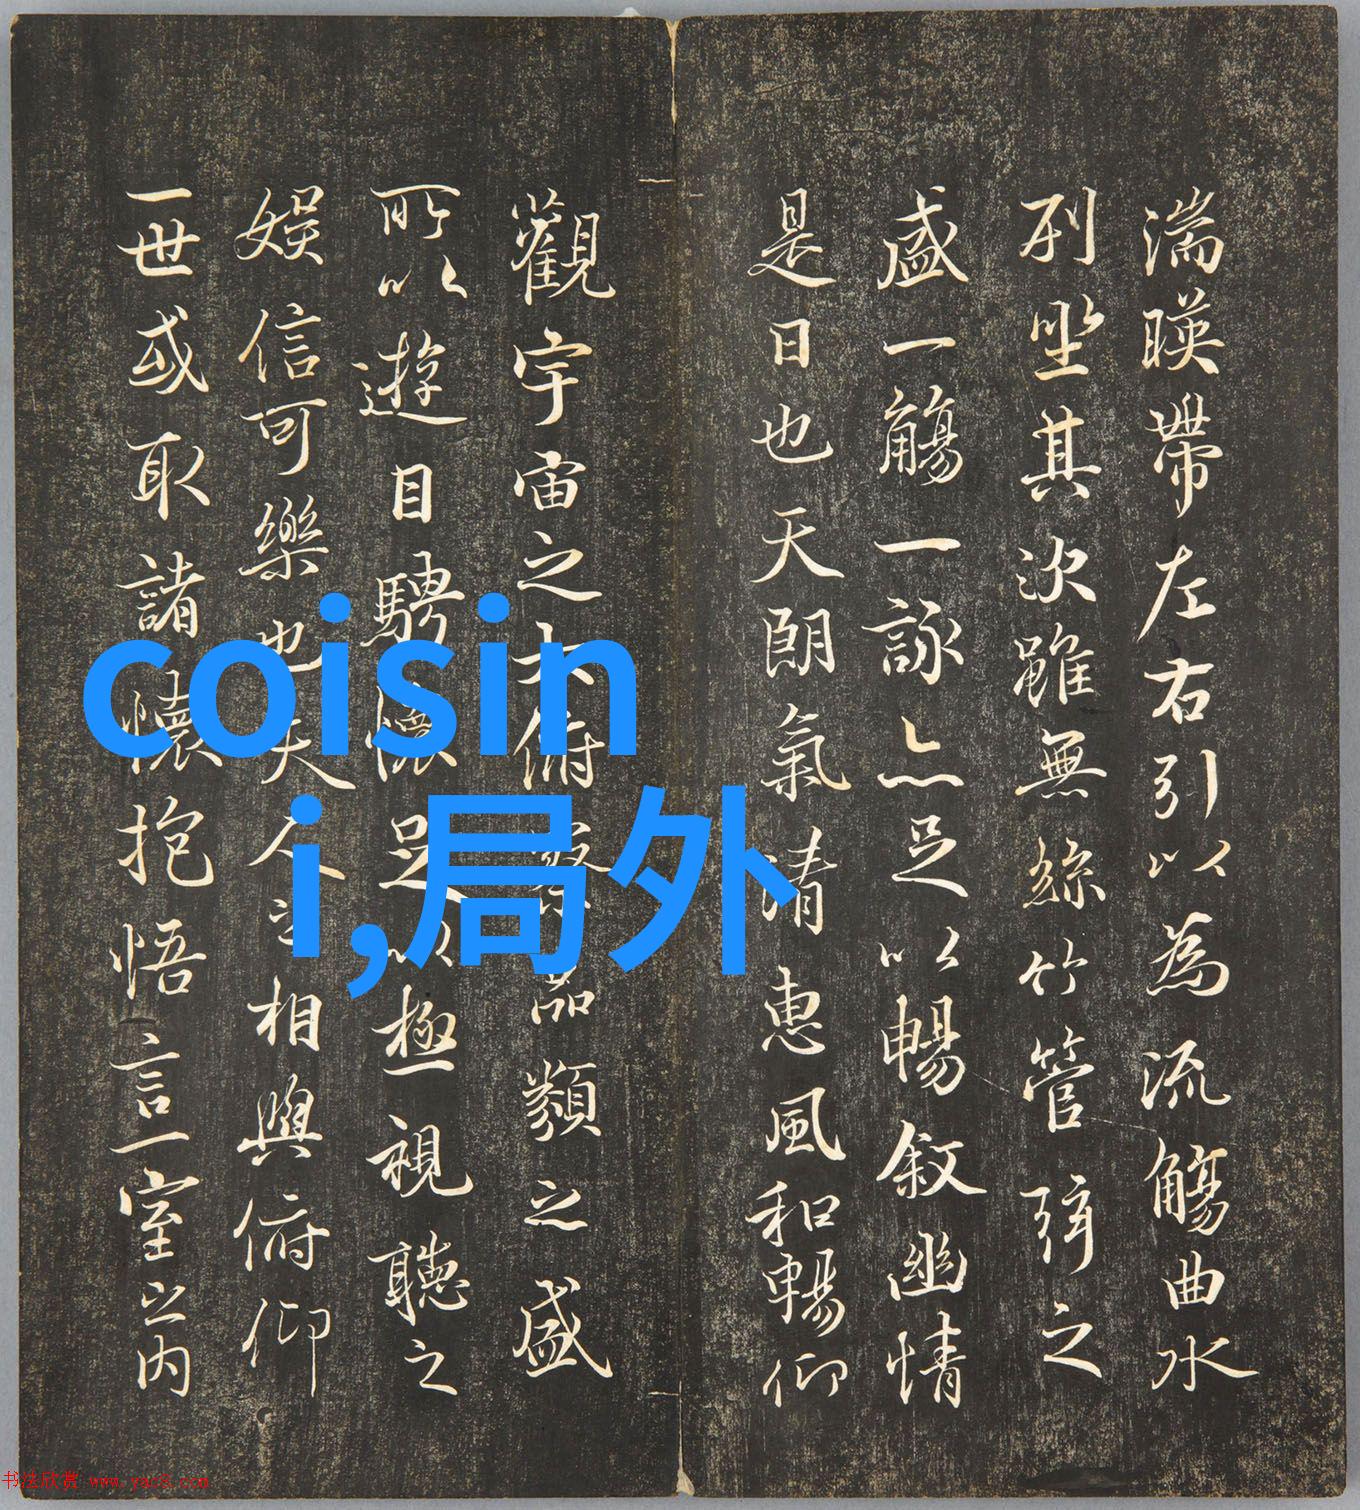 湍暎帶左右引以為流觴曲水
列坐其次雖無絲竹管弦之
盛一觴一詠亦足以暢叙幽情
是日也天朗氣清惠風和暢仰
觀宇宙之大俯察品類之盛
所以遊目騁懷足以極視聽之
娛信可樂也夫人之相與俯仰
一世或取諸懷抱悟言一室之内
coisin
i,局外
书法欣赏 www.yac8.com